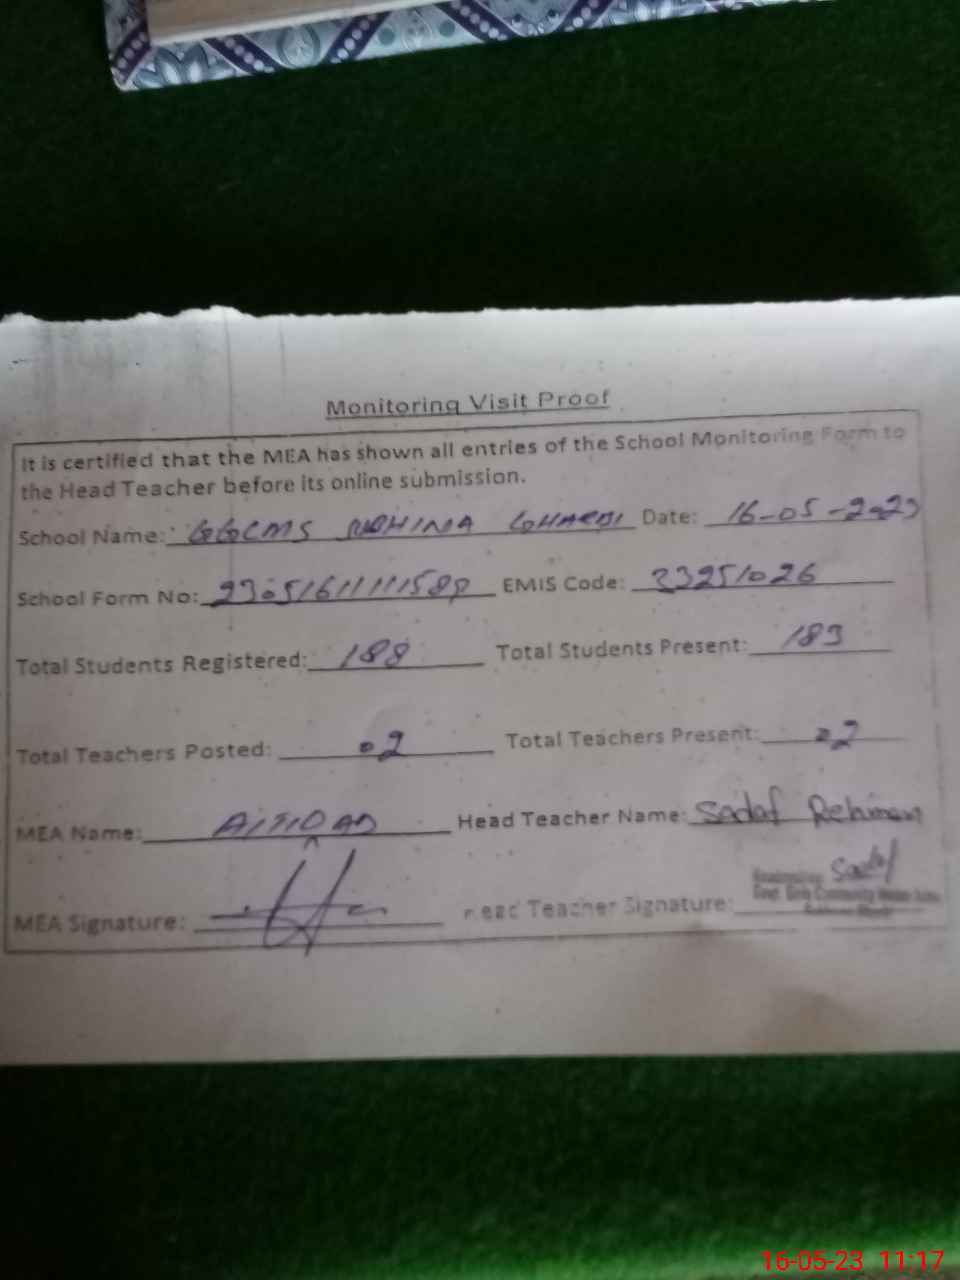 Monitoring Visit Proof
It is certified that the MEA has shown all entries of the School Monitoring Form to
the Head Teacher before its online submission.
School Name: GGCMS Date: 16-05-2023
School Form No: EMIS Code: 33251026
Total Students Registered: 188 Total Students Present: 183
Total Teachers Posted: 02 Total Teachers Present: 02
MEA Name: Head Teacher Name: Sadaf Rehman
MEA Signature: Head Teacher Signature: Sadaf
16-05-23 11:17